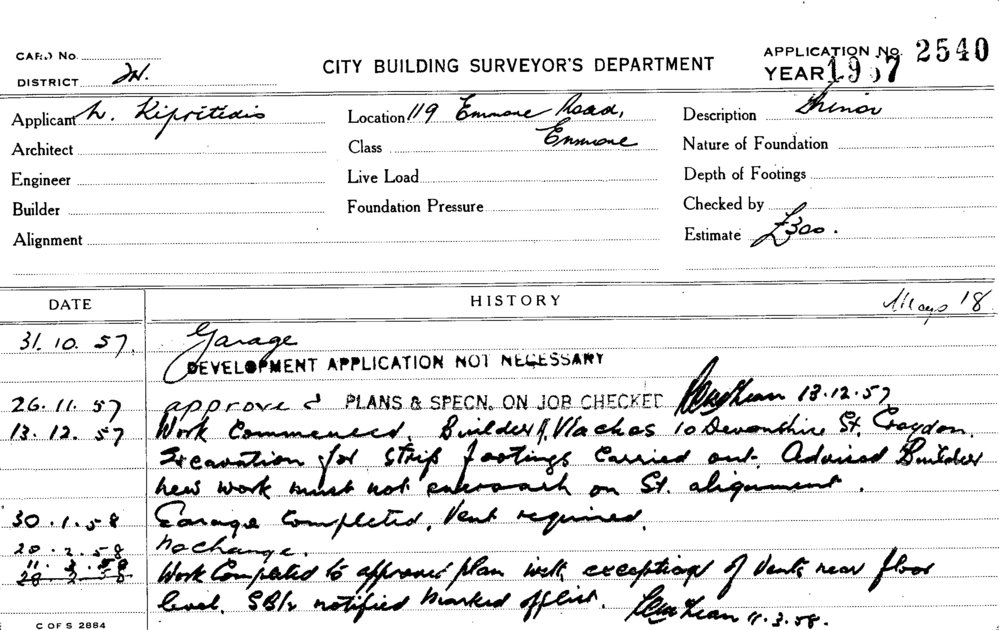 CARD No.
DISTRICT IN.
CITY BUILDING SURVEYOR'S DEPARTMENT
APPLICATION No. 2540
YEAR 1957
Applicant L. Kipritidis
Location 119 Enmore Road,
Description Minor
Architect
Class Enmore
Nature of Foundation
Engineer
Live Load
Depth of Footings
Builder
Foundation Pressure
Checked by
Alignment
Estimate £300.
DATE
HISTORY
18
31.10.57. Garage
DEVELOPMENT APPLICATION NOT NECESSARY
26.11.57 approved PLANS & SPECN. ON JOB CHECKED 13.12.57
13.12.57 Work Commenced. Builder J. Vlachos 10 Devonshire St. Croydon.
Excavation for strip footings carried out. Advised Builder
new work must not encroach on St. alignment.
30.1.58 Garage Completed, Vent required.
20.2.58 No change.
11.3.58
28 2 58 Work Completed to approved plan with exception of Vents near floor
level. notified Marked off list. 11.3.58.
C OF S 2884